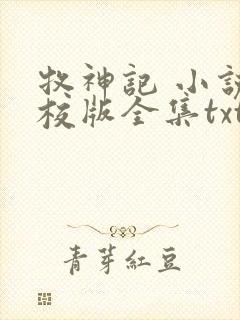 牧神記 小説
校版全集txt
青芽紅豆